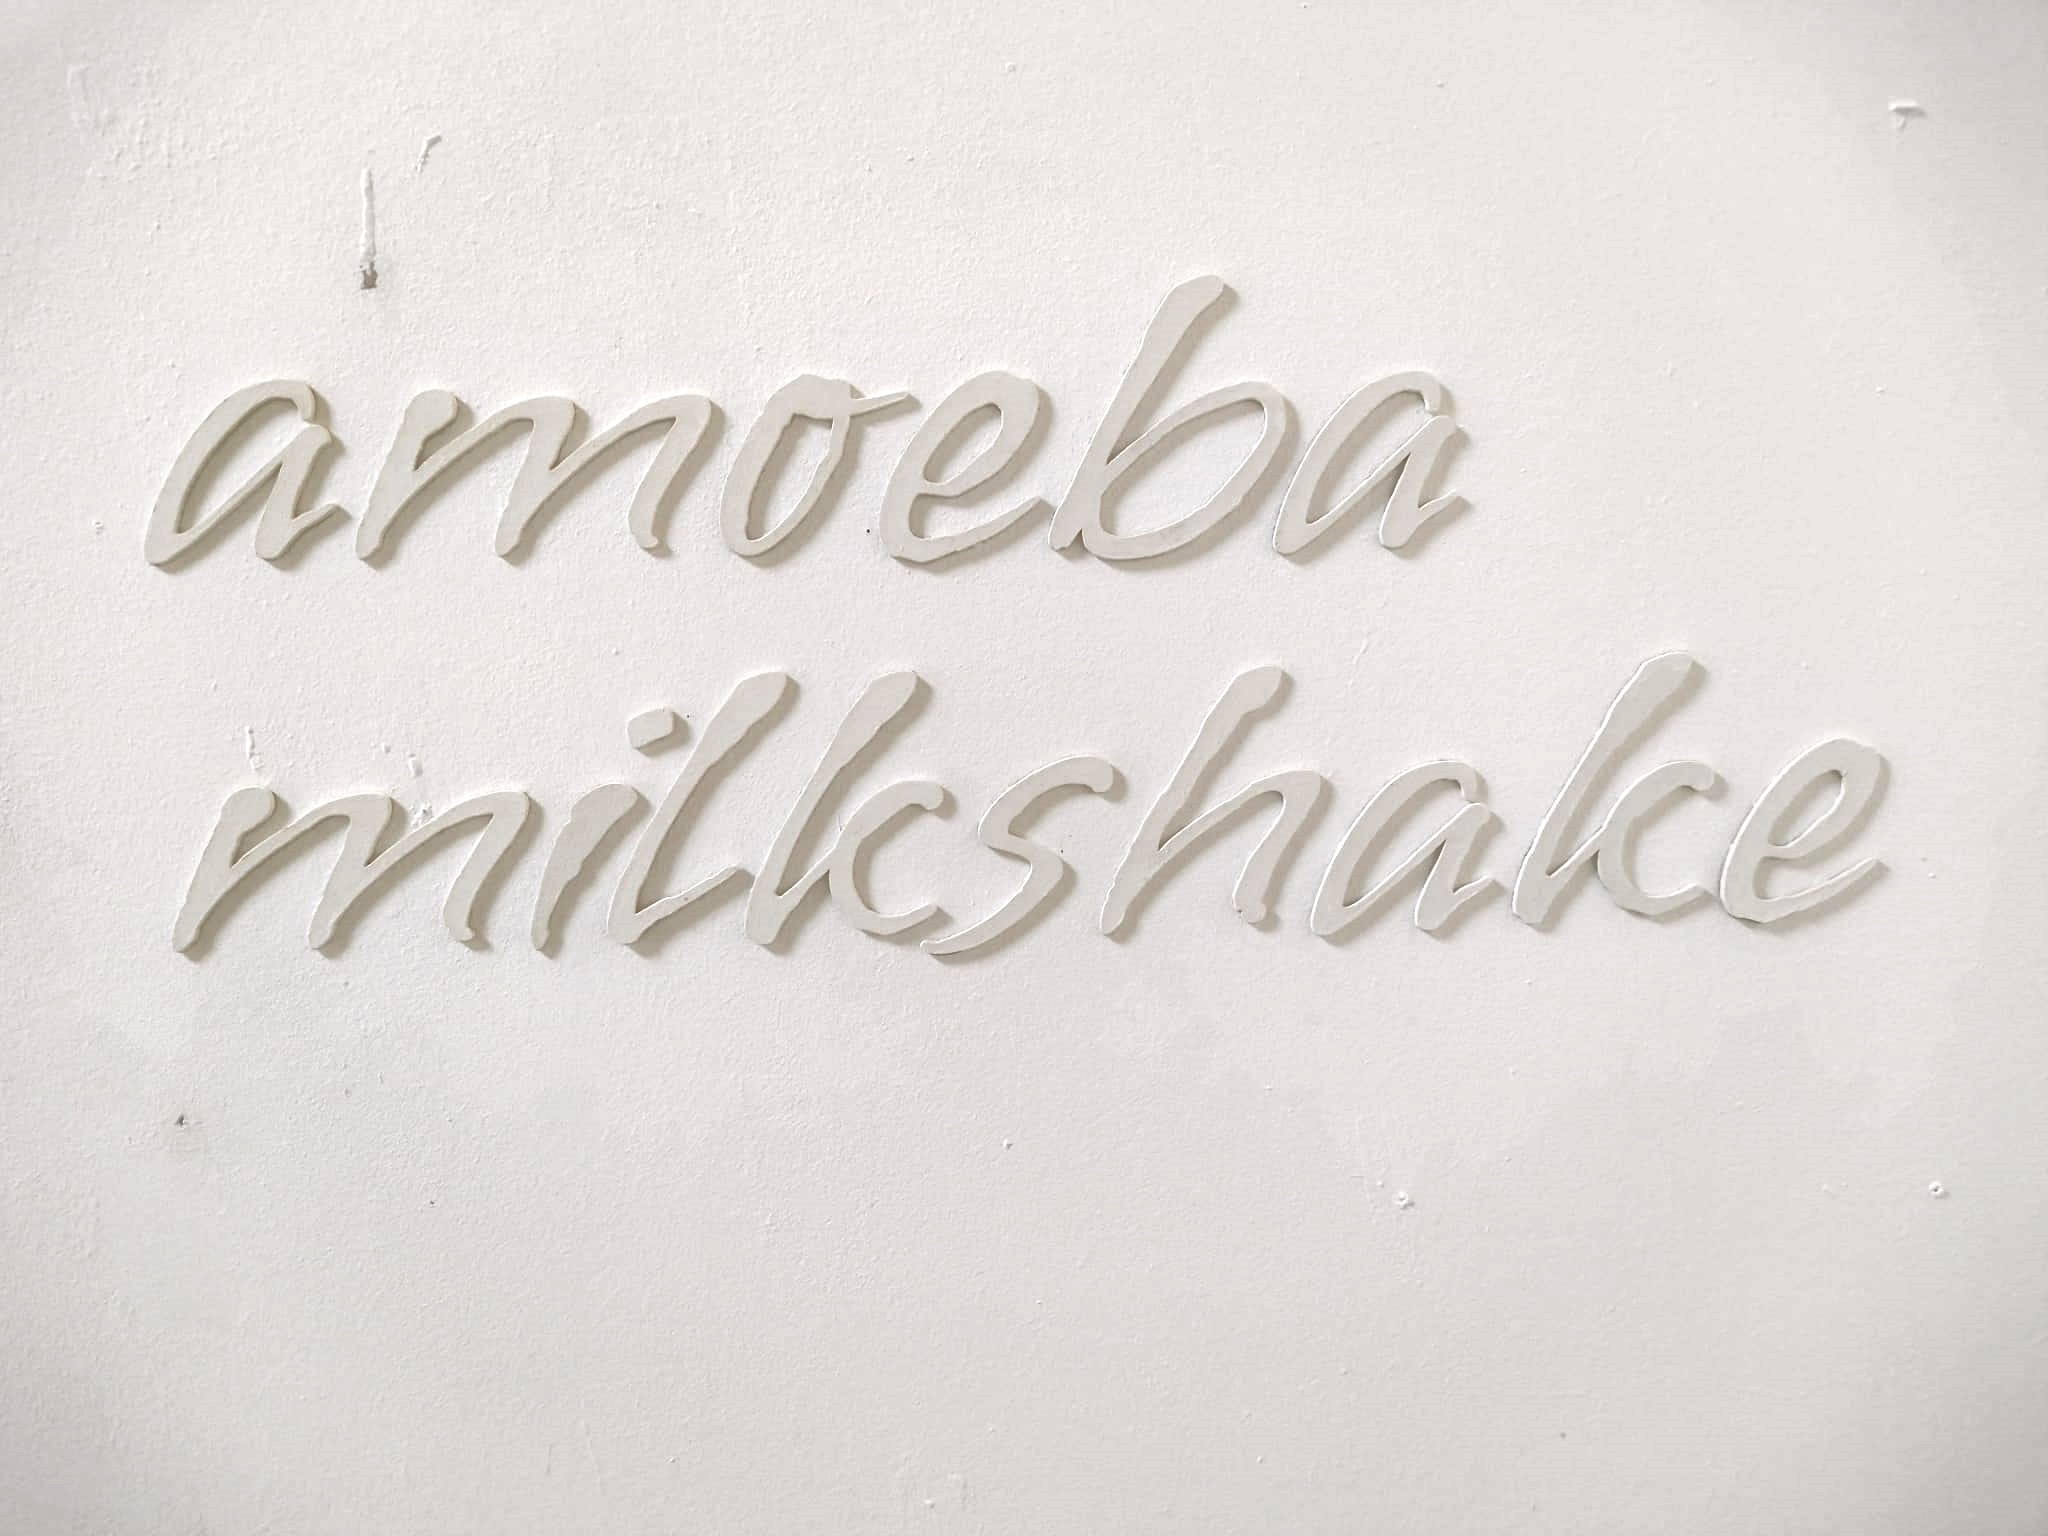 amoeba
milkshake